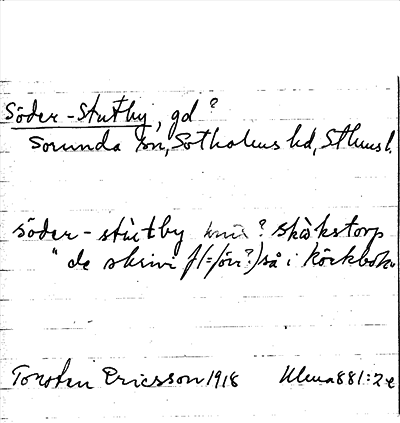 Söder-Stutby, gd?
Sorunda sn, Sotholms hd, Sthms l.
söder-stutby ? skåkstorp
" de skrivi f(=för?) så i körkboka
Torsten Ericsson 1918 Ulma 881:2